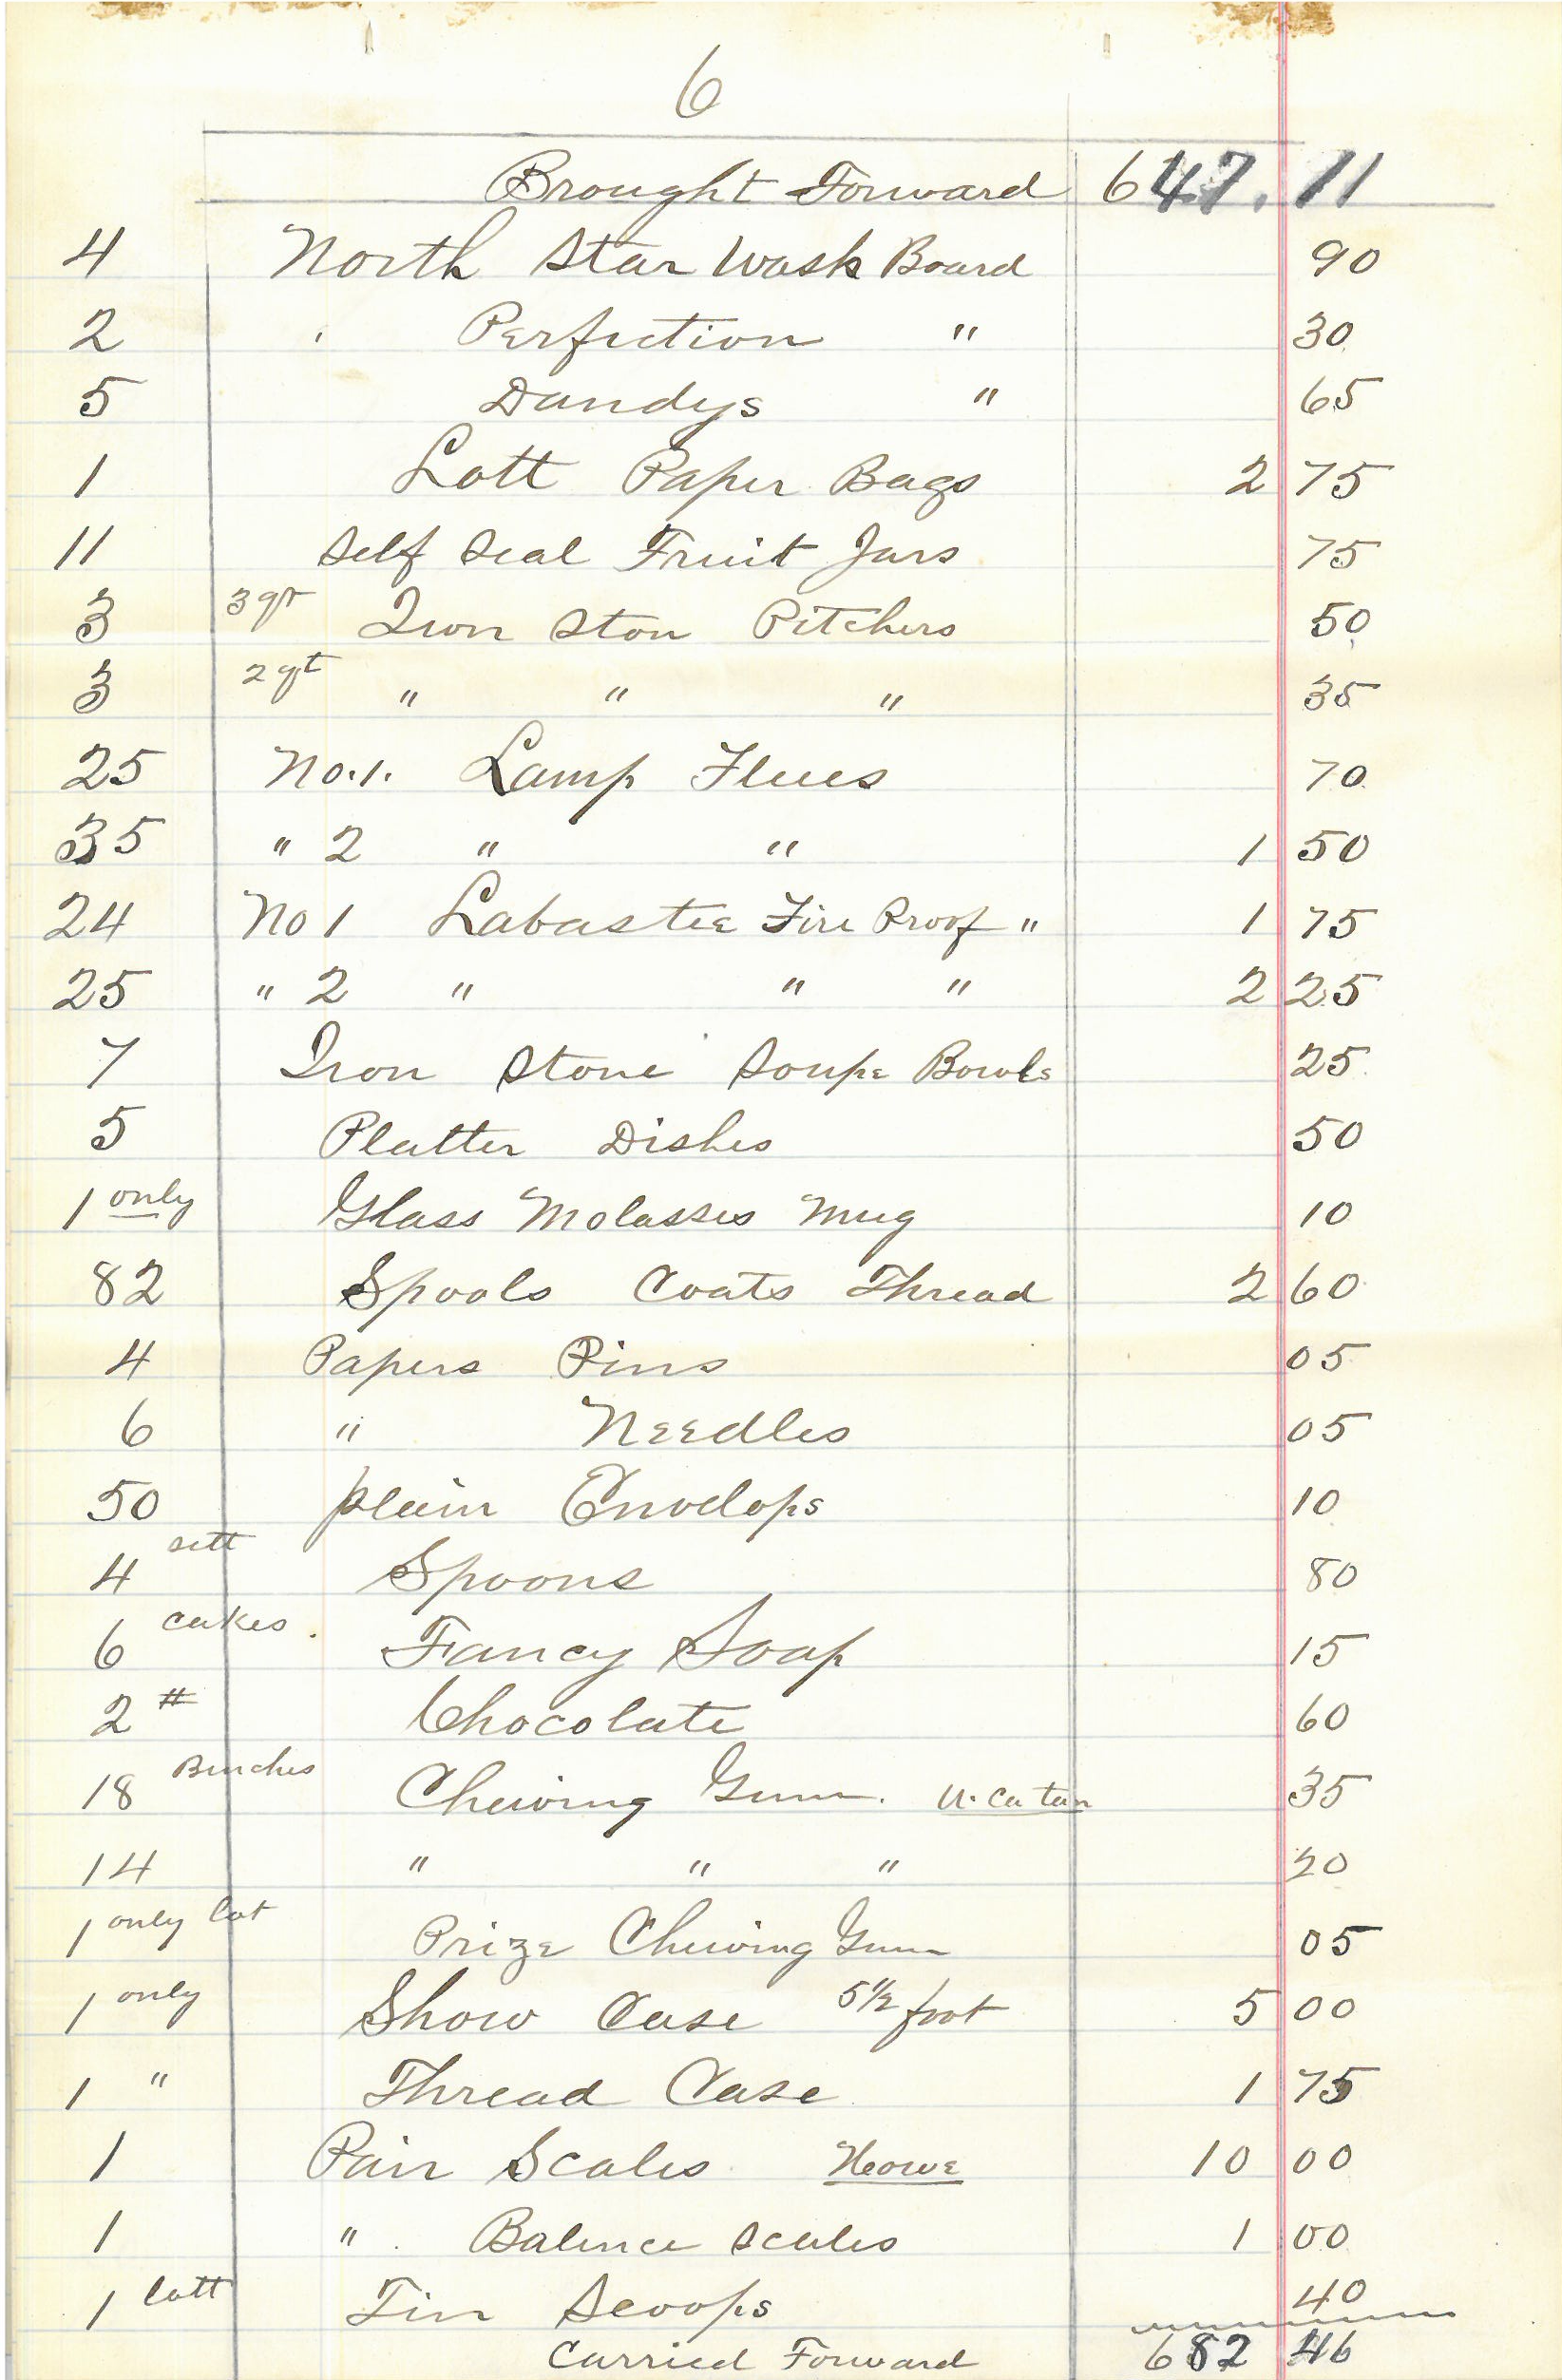 6
Brought Forward 647.11
4 North Star Wash Board 90
2 Perfection " 30
5 Dandys " 65
1 Lott Paper Bags 2 75
11 Self Seal Fruit Jars 75
3 3 qt Iron Ston Pitchers 50
3 2 qt " " " 35
25 No. 1. Lamp Flues 70
35 " 2 " " 1 50
24 No 1 Labastee Fire Proof " 1 75
25 " 2 " " " 2 25
7 Iron Stone Soupe Bowls 25
5 Platter Dishes 50
1 only Glass Molasses Mug 10
82 Spools Coats Thread 2 60
4 Papers Pins 05
6 " Needles 05
50 plain Envelops 10
4 sett Spoons 80
6 cakes. Fancy Soap 15
2 # Chocolate 60
18 Bunches Chewing Gum. U.Ca tan 35
14 " " " 20
1 only lot Prize Chewing Gum 05
1 only Show Case 5 1/2 foot 5 00
1 " Thread Case 1 75
1 Pair Scales Howe 10 00
1 " Balance Scales 1 00
1 lott Tin Scoops 40
Carried Forward 682 46